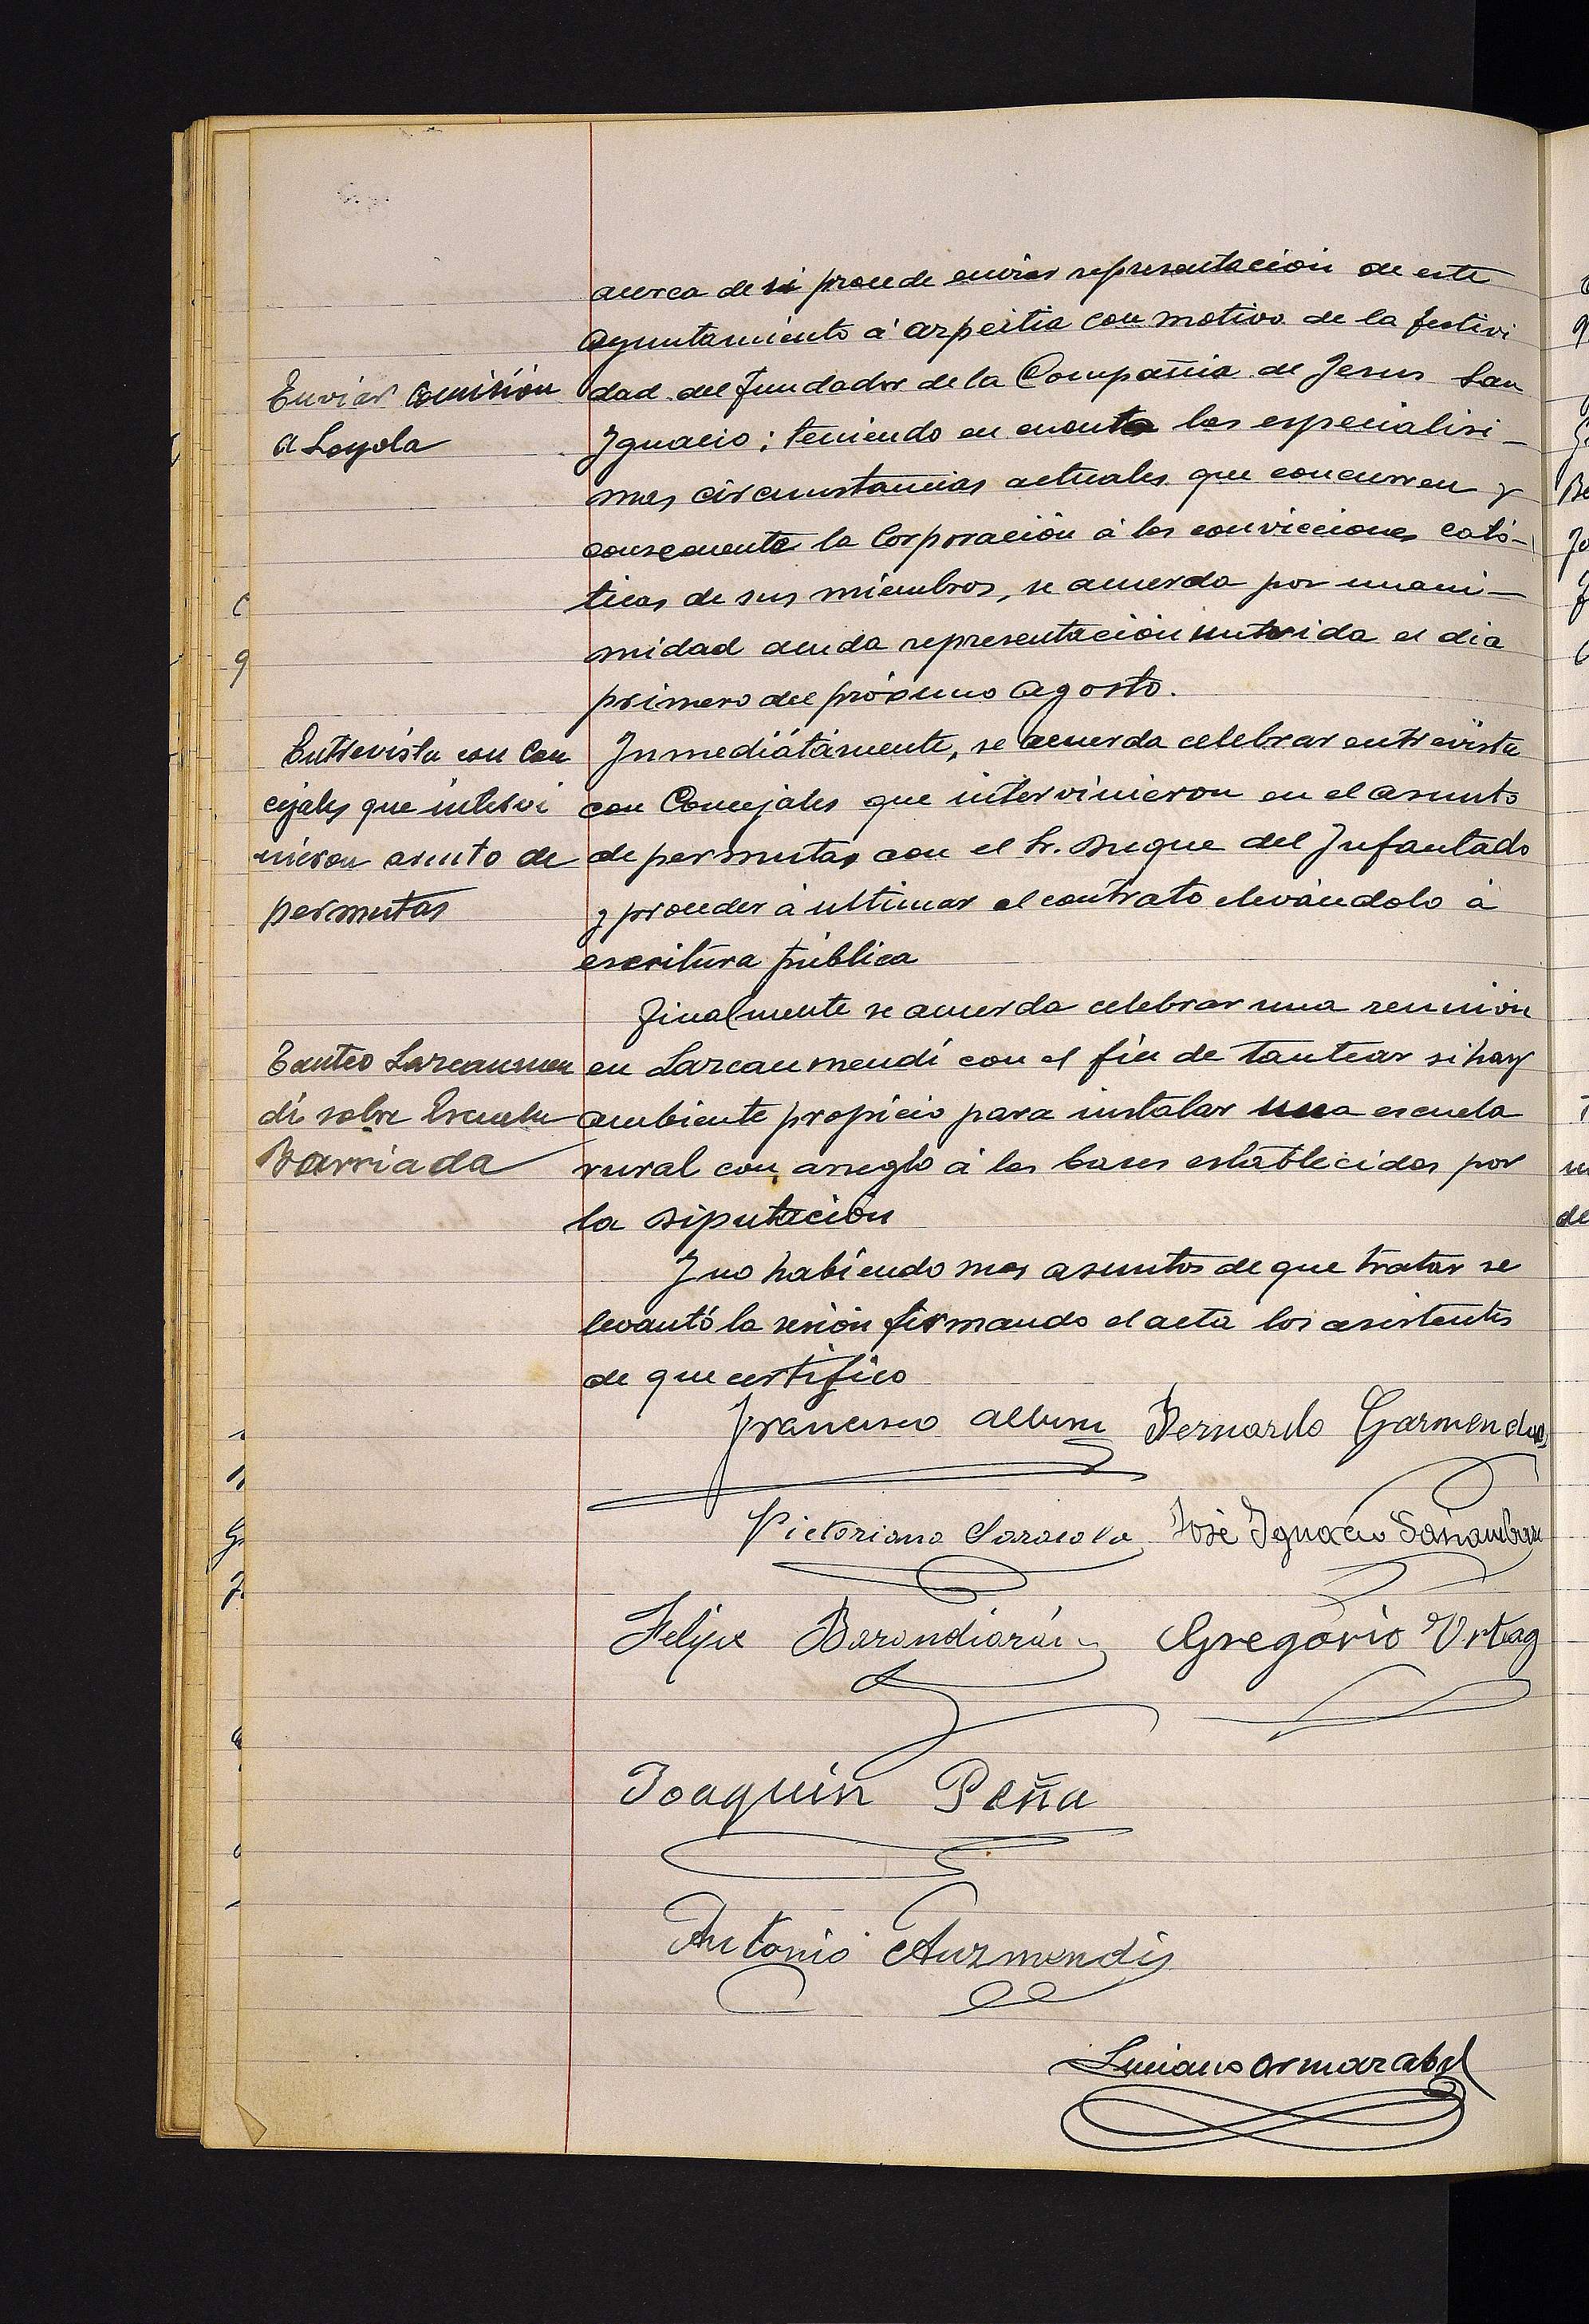 acerca de si procede enviar representación de este
Ayuntamiento á Azpeitia con motivo de la festivi
Enviar Comisión
a Loyola
dad del fundador de la Compañia de Jesus San
Ignacio; teniendo en cuenta las especialisi-
mas circunstancias actuales que concurren y
consecuente la Corporación á las convicciones cató-
licas de sus miembros, se acuerda por unani-
midad acuda representación nutrida el dia
primero del próximo Agosto.
Entrevista con Con
cejales que intervi
nieron asunto de
permutas
Inmediátamente, se acuerda celebrar entrevista
con Concejales que intervinieron en el asunto
de permutas con el Sr. Duque del Infantado
y proceder á ultimar el contrato elevándolo á
escritura pública
Finalmente se acuerda celebrar una reunión
Tanteo Larcaumen
di sobre Escuela
Barriada
en Larcaumendi con el fin de tantear si hay
ambiente propicio para instalar una escuela
rural con arreglo á las bases establecidas por
la Diputación
Y no habiendo mas asuntos de que tratar se
levantó la sesión firmando el acta los asistentes
de que certifico
Francisco Albisu Bernardo Garmendia
Victoriano Sarasola José Ignacio
Felipe Barandiarán Gregorio Urtag
Joaquin Peña
Antonio Auzmendi
Luciano Ormazabal